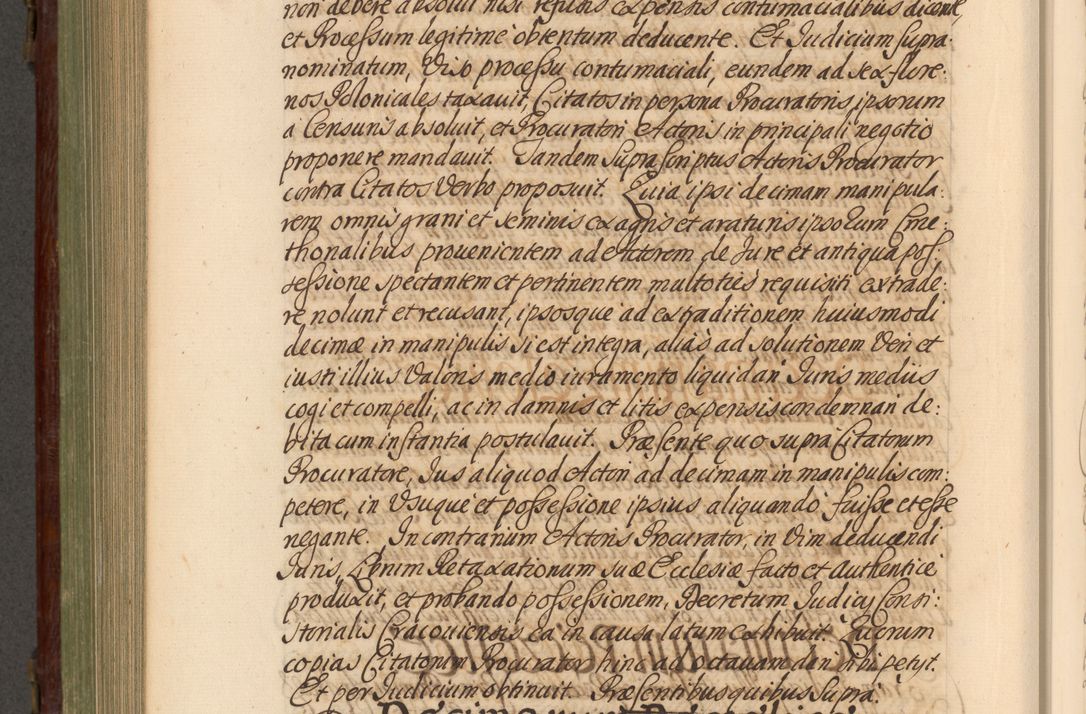 non debere absolui nisi refusis expensis contumacialibus dicente,
et Processum legitime obtentum deducente. Et Judicium supra-
nominatum, Viso processu contumaciali, eundem ad sex flore-
nos Polonicales taxauit, Citatos in persona Procuratoris ipsorum
a Censuris absoluit, et Procuratori Actoris in principali negotio
proponere mandauit. Tandem Suprascriptus Actoris Procurator
contra Citatos Verbo proposuit. Quia ipsi decimam manipula-
rem omnis grani et seminis ex agris et araturis ipsorum Cme-
thonalibus prouenientem ad Actorem de Jure et antiqua pos-
sessione spectantem et pertinentem multoties requisiti extrade-
re nolunt et recusant, ipsosque ad extraditionem huiusmodi
decimæ in manipulis si est integra, aliàs ad solutionem Veri et
iusti illius Valoris medio iuramento liquidari Juris mediis
cogi et compelli, ac in damnis et litis expensis condemnari de-
bita cum instantia postulauit. Præsente quo supra Citatorum
Procuratore, Jus aliquod Actori ad decimam in manipulis com-
petere, in Vsuque et possessione ipsius aliquando fuisse et esse
negante. In contrarium Actoris Procurator, in Vim deducendi
Juris, Librum Retaxationum suæ Ecclesiæ facto et Authentice
produxit, et probando possessionem, Decretum Judicij Consi-
storialis Cracouiensis ea in causa latum exhibuit. Quorum
copias Citatorum Procurator hinc ad octauam dari sibi petyt.
Et per Judicium obtinuit. Præsentibus quibus Supra.